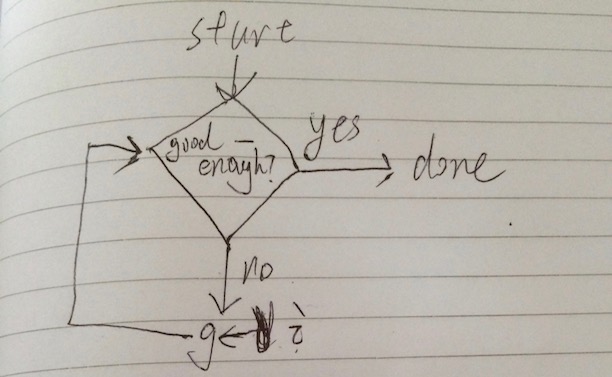 start
good -
enough?
yes
done
no
g